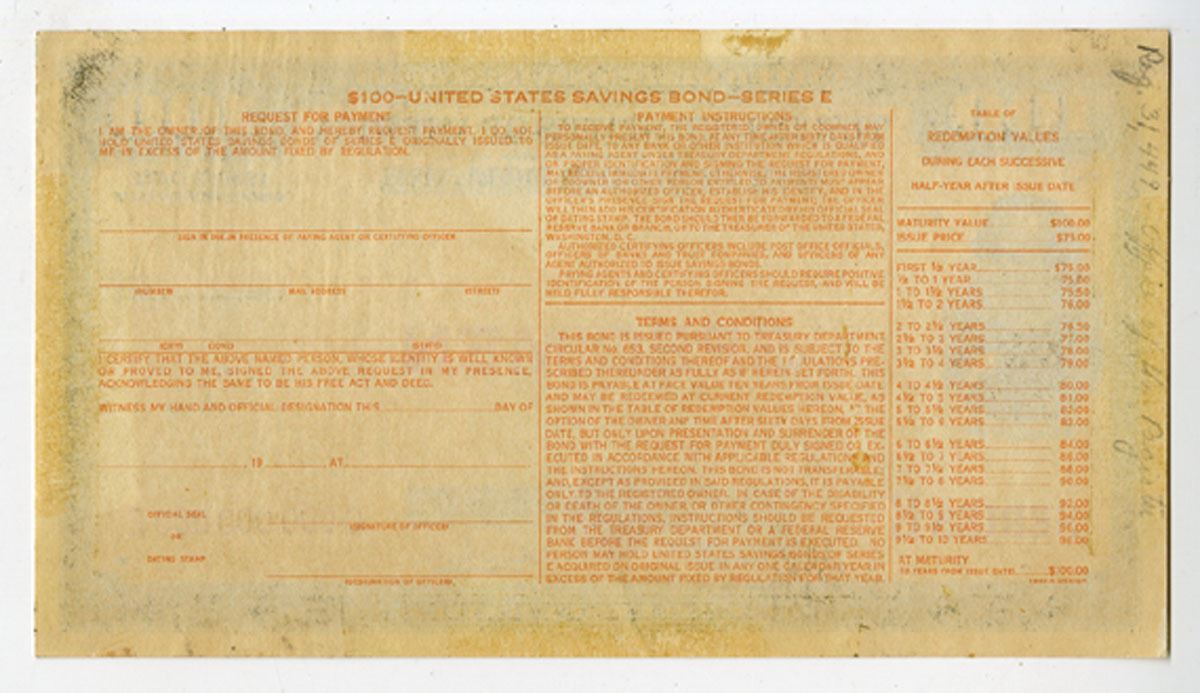 $100—UNITED STATES SAVINGS BOND—SERIES E
REQUEST FOR PAYMENT
I AM THE OWNER OF THIS BOND, AND HEREBY REQUEST PAYMENT. I DO NOT
HOLD UNITED STATES SAVINGS BONDS OF SERIES E ORIGINALLY ISSUED TO
ME IN EXCESS OF THE AMOUNT FIXED BY REGULATION.
SIGN IN INK IN PRESENCE OF PAYING AGENT OR CERTIFYING OFFICER
(NUMBER) MAIL ADDRESS (STREET)
(CITY) (STATE)
I CERTIFY THAT THE ABOVE NAMED PERSON, WHOSE IDENTITY IS WELL KNOWN
OR PROVED TO ME, SIGNED THE ABOVE REQUEST IN MY PRESENCE,
ACKNOWLEDGING THE SAME TO BE HIS FREE ACT AND DEED.
WITNESS MY HAND AND OFFICIAL DESIGNATION THIS DAY OF
, 19 , AT
OFFICIAL SEAL
OR
DATING STAMP
(SIGNATURE OF OFFICER)
(DESIGNATION OF OFFICER)
PAYMENT INSTRUCTIONS
TO RECEIVE PAYMENT, THE REGISTERED OWNER OR COOWNER MAY
PERSONALLY PRESENT THIS BOND AT ANY TIME AFTER SIXTY DAYS FROM
ISSUE DATE, TO ANY BANK OR OTHER INSTITUTION WHICH IS QUALIFIED
AS A PAYING AGENT UNDER TREASURY DEPARTMENT REGULATIONS, AND
OR A PROPER IDENTIFICATION AND SIGNING THE REQUEST FOR PAYMENT,
MAY RECEIVE IMMEDIATE PAYMENT. OTHERWISE, THE REGISTERED OWNER
OR COOWNER (OR OTHER PERSON ENTITLED TO PAYMENT) MUST APPEAR
BEFORE AN AUTHORIZED OFFICER, ESTABLISH HIS IDENTITY, AND IN THE
OFFICER'S PRESENCE SIGN THE REQUEST FOR PAYMENT. THE OFFICER
WILL THEN ADD HIS CERTIFICATION AUTHENTICATED BY OFFICIAL SEAL
OR DATING STAMP. THE BOND SHOULD THEN BE FORWARDED TO A FEDERAL
RESERVE BANK OR BRANCH, OR TO THE TREASURER OF THE UNITED STATES,
WASHINGTON, D. C.
AUTHORIZED CERTIFYING OFFICERS INCLUDE POST OFFICE OFFICIALS,
OFFICERS OF BANKS AND TRUST COMPANIES, AND OFFICERS OF ANY
AGENT AUTHORIZED TO ISSUE SAVINGS BONDS.
PAYING AGENTS AND CERTIFYING OFFICERS SHOULD REQUIRE POSITIVE
IDENTIFICATION OF THE PERSON SIGNING THE REQUEST, AND WILL BE
HELD FULLY RESPONSIBLE THEREFOR.
TERMS AND CONDITIONS
THIS BOND IS ISSUED PURSUANT TO TREASURY DEPARTMENT
CIRCULAR No. 653, SECOND REVISION, AND IS SUBJECT TO THE
TERMS AND CONDITIONS THEREOF AND THE REGULATIONS PRE-
SCRIBED THEREUNDER AS FULLY AS IF HEREIN SET FORTH. THIS
BOND IS PAYABLE AT FACE VALUE TEN YEARS FROM ISSUE DATE
AND MAY BE REDEEMED AT CURRENT REDEMPTION VALUE, AS
SHOWN IN THE TABLE OF REDEMPTION VALUES HEREON, AT THE
OPTION OF THE OWNER ANY TIME AFTER SIXTY DAYS FROM ISSUE
DATE, BUT ONLY UPON PRESENTATION AND SURRENDER OF THE
BOND WITH THE REQUEST FOR PAYMENT DULY SIGNED OR EX-
ECUTED IN ACCORDANCE WITH APPLICABLE REGULATIONS AND
THE INSTRUCTIONS HEREON. THIS BOND IS NOT TRANSFERABLE;
AND, EXCEPT AS PROVIDED IN SAID REGULATIONS, IT IS PAYABLE
ONLY TO THE REGISTERED OWNER. IN CASE OF THE DISABILITY
OR DEATH OF THE OWNER, OR OTHER CONTINGENCY SPECIFIED
IN THE REGULATIONS, INSTRUCTIONS SHOULD BE REQUESTED
FROM THE TREASURY DEPARTMENT OR A FEDERAL RESERVE
BANK BEFORE THE REQUEST FOR PAYMENT IS EXECUTED. NO
PERSON MAY HOLD UNITED STATES SAVINGS BONDS OF SERIES
E ACQUIRED ON ORIGINAL ISSUE IN ANY ONE CALENDAR YEAR IN
EXCESS OF THE AMOUNT FIXED BY REGULATION FOR THAT YEAR.
TABLE OF
REDEMPTION VALUES
DURING EACH SUCCESSIVE
HALF-YEAR AFTER ISSUE DATE
MATURITY VALUE $100.00
ISSUE PRICE $75.00
FIRST ½ YEAR $75.00
½ TO 1 YEAR 75.00
1 TO 1½ YEARS 75.50
1½ TO 2 YEARS 76.00
2 TO 2½ YEARS 76.50
2½ TO 3 YEARS 77.00
3 TO 3½ YEARS 78.00
3½ TO 4 YEARS 79.00
4 TO 4½ YEARS 80.00
4½ TO 5 YEARS 81.00
5 TO 5½ YEARS 82.00
5½ TO 6 YEARS 83.00
6 TO 6½ YEARS 84.00
6½ TO 7 YEARS 86.00
7 TO 7½ YEARS 88.00
7½ TO 8 YEARS 90.00
8 TO 8½ YEARS 92.00
8½ TO 9 YEARS 94.00
9 TO 9½ YEARS 96.00
9½ TO 10 YEARS 98.00
AT MATURITY
(10 YEARS FROM ISSUE DATE) $100.00
Office of the Register